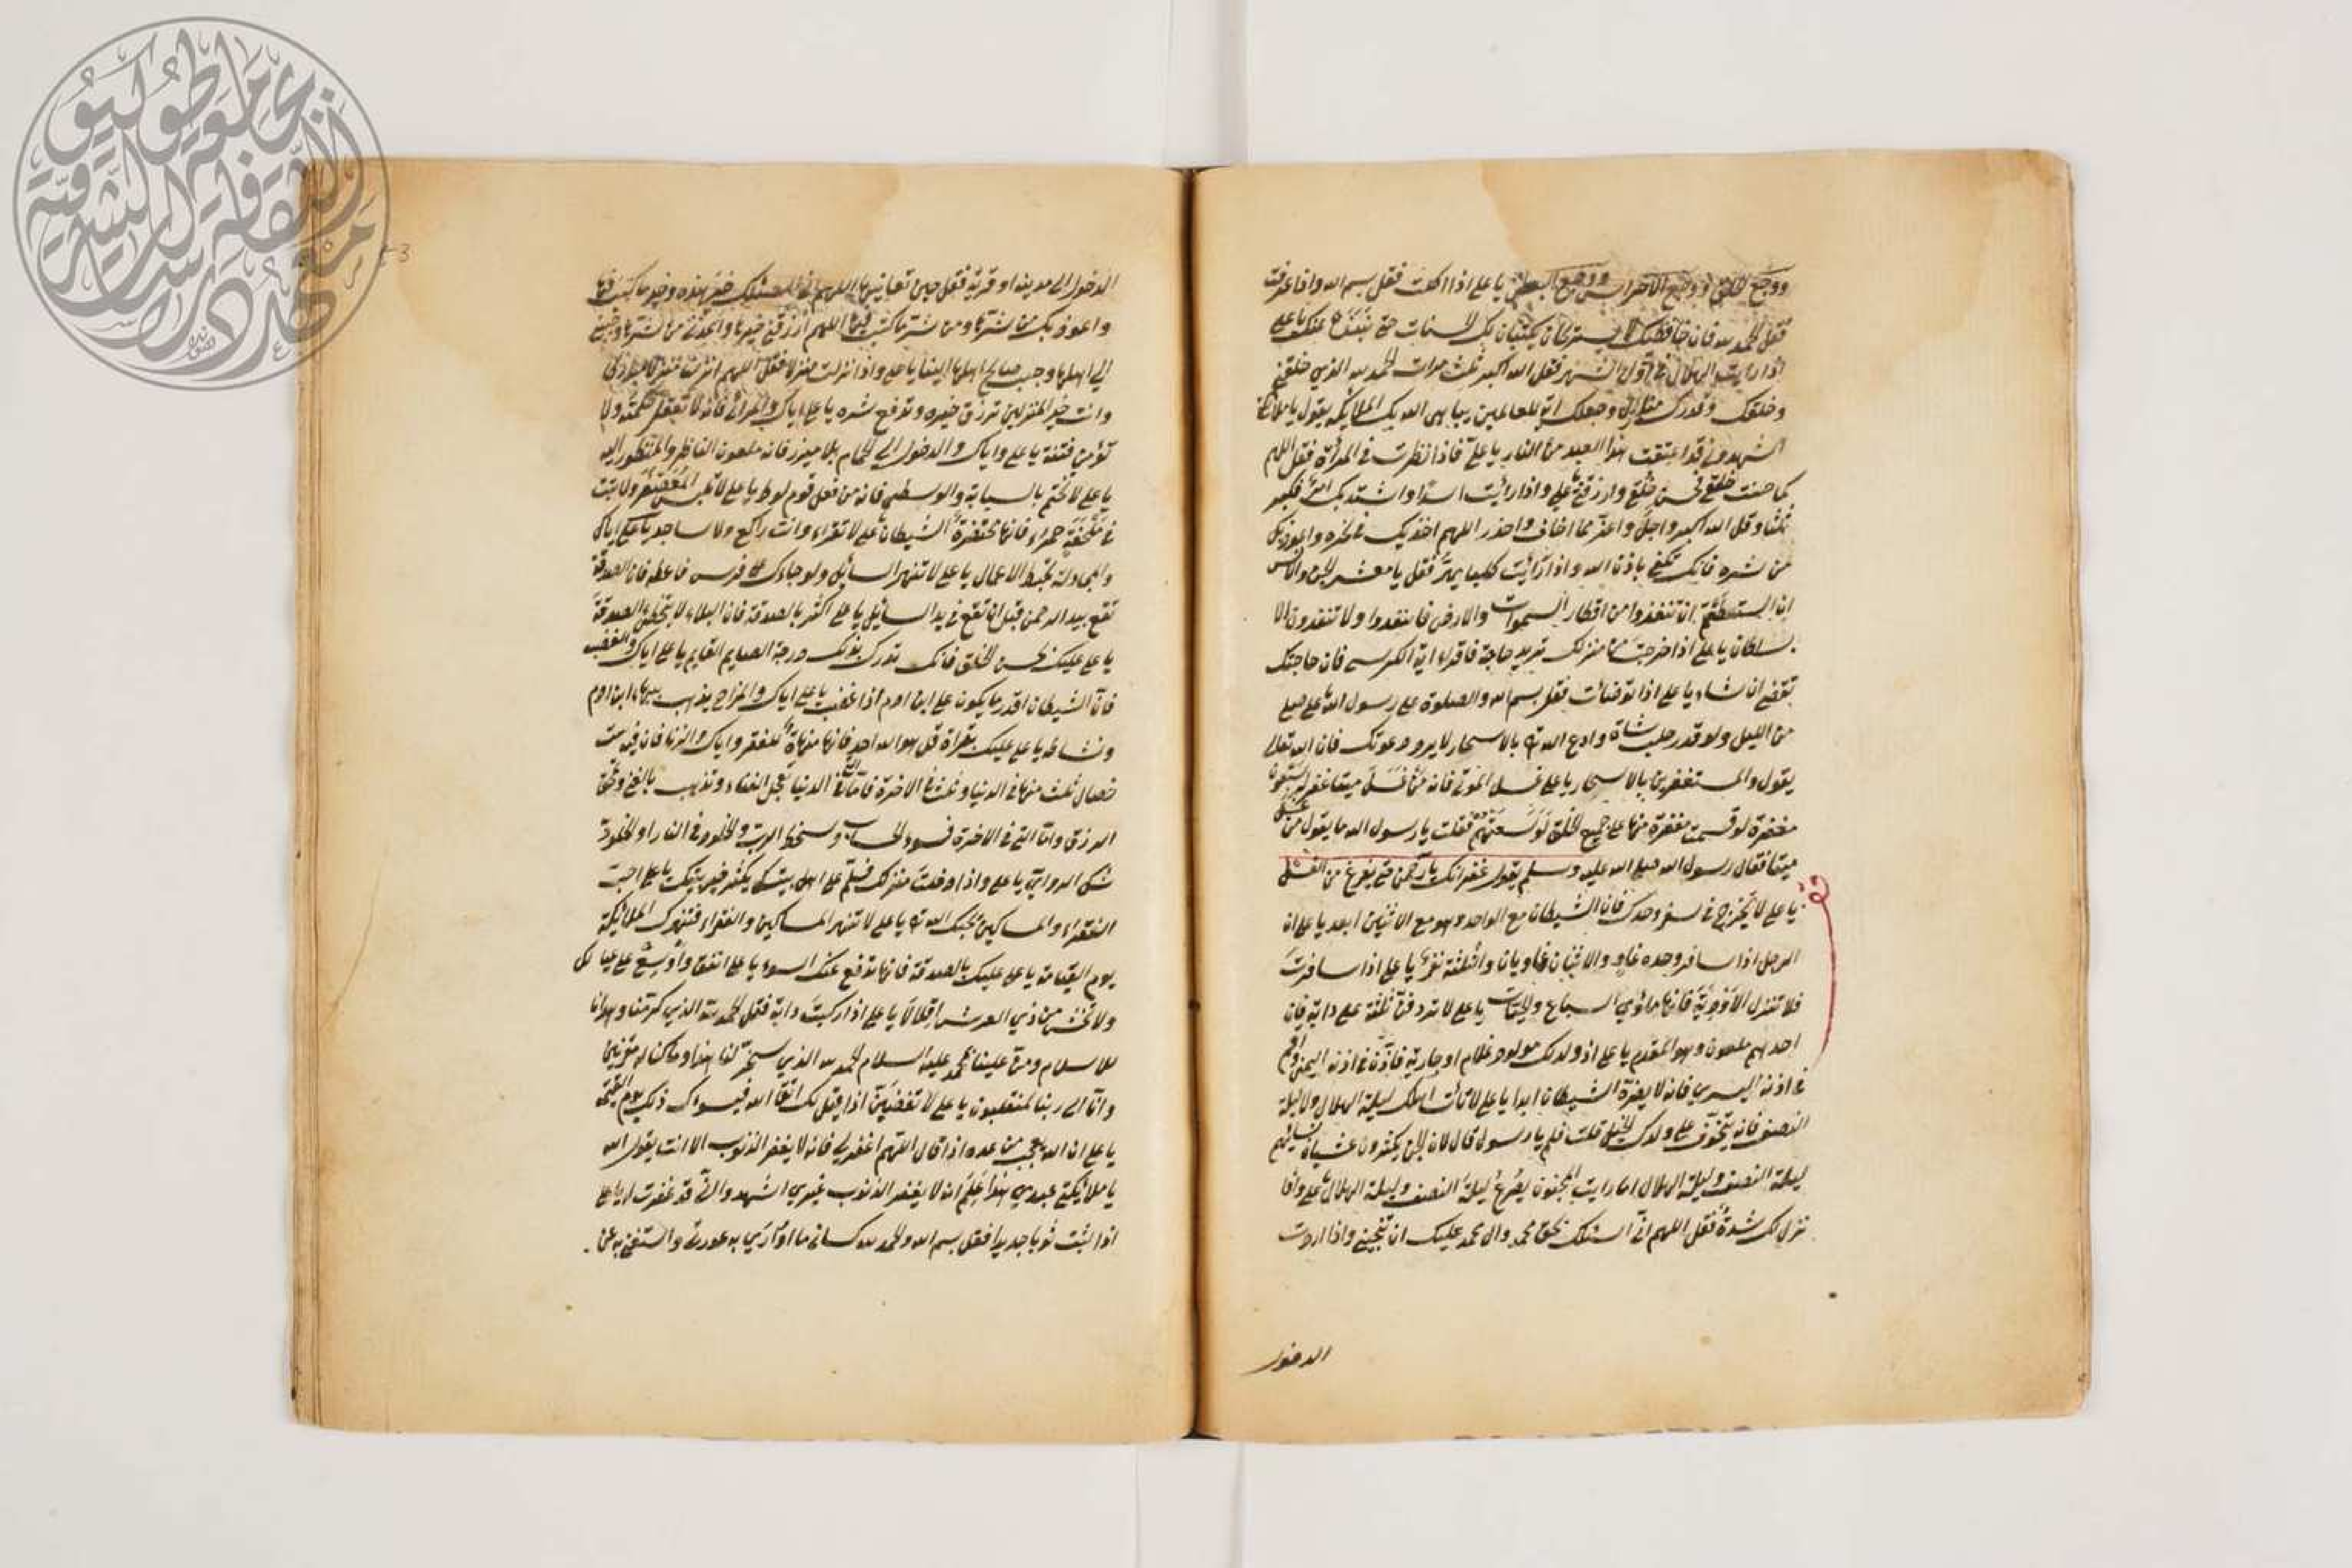 ووجع الحلق ووجع الاضراس ووجع البطن يا علي اذا اكلت فقل بسم الله واذا فرغت
فقل الحمد لله فان حافظيك لا يستريحان يكتبان لك الحسنات حتى عنك يا علي
اذا رايت الهلال في اول الشهر فقل الله اكبر ثلث مرات الحمد لله الذي خلقني
وخلقك وقدرك منازل وجعلك اية للعالمين يباهي الله بك الملائكة يقول يا ملائكتي
اشهدوا اني قد اعتقت هذا العبد من النار يا علي فاذا نظرت في المرأة فقل اللهم
كما حسنت خلقي فحسن خلقي وارزقني يا علي واذا رأيت اسدا واشتد بك امر فكبر
ثلثا وقل الله اكبر واجل واعز مما اخاف واحذر اللهم اني بك في نحره واعوذ بك
من شره فانك تكفى باذن الله واذا رأيت كلبا يهر فقل يا معشر الجن والانس
ان استطعتم ان تنفذوا من اقطار السموات والارض فانفذوا ولا تنفذون الا
بسلطان يا علي اذا خرجت من منزلك تريد حاجة فاقراء اية الكرسي فان حاجتك
تقضى ان شاء يا علي اذا توضأت فقل بسم الله والصلوة على رسول الله يا علي صل
من الليل ولو قدر حلب شاة وادع الله تع بالاسحار لا يرد دعوتك فان الله تعالى
يقول والمستغفرين بالاسحار يا علي غسل الموتى فانه من غسل ميتا غفر له سبعون
مغفرة لو قسمت مغفرة منها على جميع الخلق لوسعتهم فقلت يا رسول الله ما يقول من غسل
ميتا فقال رسول الله صلى الله عليه وسلم يقول غفرانك يا رحمن حتى يفرغ من الغسل
يا علي لا تخرج في سفر وحدك فان الشيطان مع الواحد وهو مع الاثنين ابعد يا علي ان
الرجل اذا سافر وحده غاو والاثنان غاويان والثلثة نفر يا علي اذا سافرت
فلا تنزل الاودية فانها مأوى السباع والحيات يا علي لا تردفن ثلثة على دابة فان
احدهم ملعون وهو المقدم يا علي اذا ولد لك مولود غلام او جارية فاذن في اذنه اليمنى واقم
في اذنه اليسرى فانه لا يضره الشيطان ابدا يا علي لا تأت اهلك ليلة الهلال ولا ليلة
النصف فانه يتخوف على ولدك الخبل قلت فلم يا رسول قال لان الجن يكثرون غشيان نسائهم
ليلة النصف وليلة الهلال اما رايت المجنون يصرع ليلة النصف وليلة الهلال يا علي واذا
نزل بك شدة فقل اللهم اني اسئلك بحق محمد وال محمد عليك ان تنجيني واذا اردت
الدخول
الدخول الى مدينة او قرية فقل حين تعاينها اللهم اني اسئلك خير هذه وخير ما كتبت فيها
واعوذ بك من شرها ومن شر ما كتبت فيها اللهم ارزقني خيرها واعذني من شرها وحببني
الى اهلها وحبب صالح اهلها الينا يا علي واذا نزلت منزلا فقل اللهم انزلنا منزلا مباركا
وانت خير المنزلين ترزق خيره وتدفع شره يا علي اياك والمراء فانه لا تعقل حكمته ولا
تؤمن فتنته يا علي واياك والدخول الى الحمام بلا ميزر فانه ملعون الناظر والمنظور اليه
يا علي لا تختم بالسبابة والوسطى فانه من فعل قوم لوط يا علي لا تلبس المعصفر ولا تبت
في ملحفة حمراء فانها محتضرة الشيطان يا علي لا تقراء وانت راكع ولا ساجد يا علي اياك
والمجادلة تحبط الاعمال يا علي لا تنهر السائل ولو جاءك على فرس فاعطه فان الصدقة
تقع بيد الرحمن قبل ان تقع في يد السائل يا علي اكثر بالصدقة فان البلاء لا يتخطى الصدقة
يا علي عليك بحسن الخلق فانك تدرك بذلك درجة الصايم القايم يا علي اياك والغضب
فان الشيطان اقدر ما يكون على ابن ادم اذا غضب يا علي اياك والمزاح يذهب ببهاء ابن ادم
ونشاطه يا علي عليك بقراة قل هو الله احد فانها منهاة للفقر واياك والزنا فان فيه ست
خصال ثلث منها في الدنيا وثلث في الاخرة فاما التي في الدنيا تعجل الفناء وتذهب بالغنى وتمحق
الرزق واما التي في الاخرة فسوء الحساب وسخط الرب والخلود في النار او الخلود
شك الراوي يا علي واذا دخلت منزلك فسلم على اهل بيتك يكثر خير بيتك يا علي احب
الفقراء والمساكين يحبك الله تع يا علي لا تنهر المساكين والفقراء فتنهرك الملائكة
يوم القيامة يا علي عليك بالصدقة فانها تدفع عنك السوء يا علي انفق واوسع على عيالك
ولا تخش من ذي العرش اقلالا يا علي اذا ركبت دابة فقل الحمد لله الذي كرمنا وهدانا
للاسلام ومن علينا بمحمد عليه السلام الحمد لله الذي سخر لنا هذا وما كنا له مقرنين
وانا الى ربنا لمنقلبون يا علي لا تغضبن اذا قيل لك اتق الله فيسوءك ذلك يوم القيمة
يا علي ان الله يعجب من عبده اذا قال اللهم اغفر لي فانه لا يغفر الذنوب الا انت يقول الله
يا ملائكتي عبدي هذا علم انه لا يغفر الذنوب غيري اشهدوا اني قد غفرت له يا علي
اذا لبست ثوبا جديدا فقل بسم الله والحمد لله كساني ما اوارى به عورتي واستغني به عن